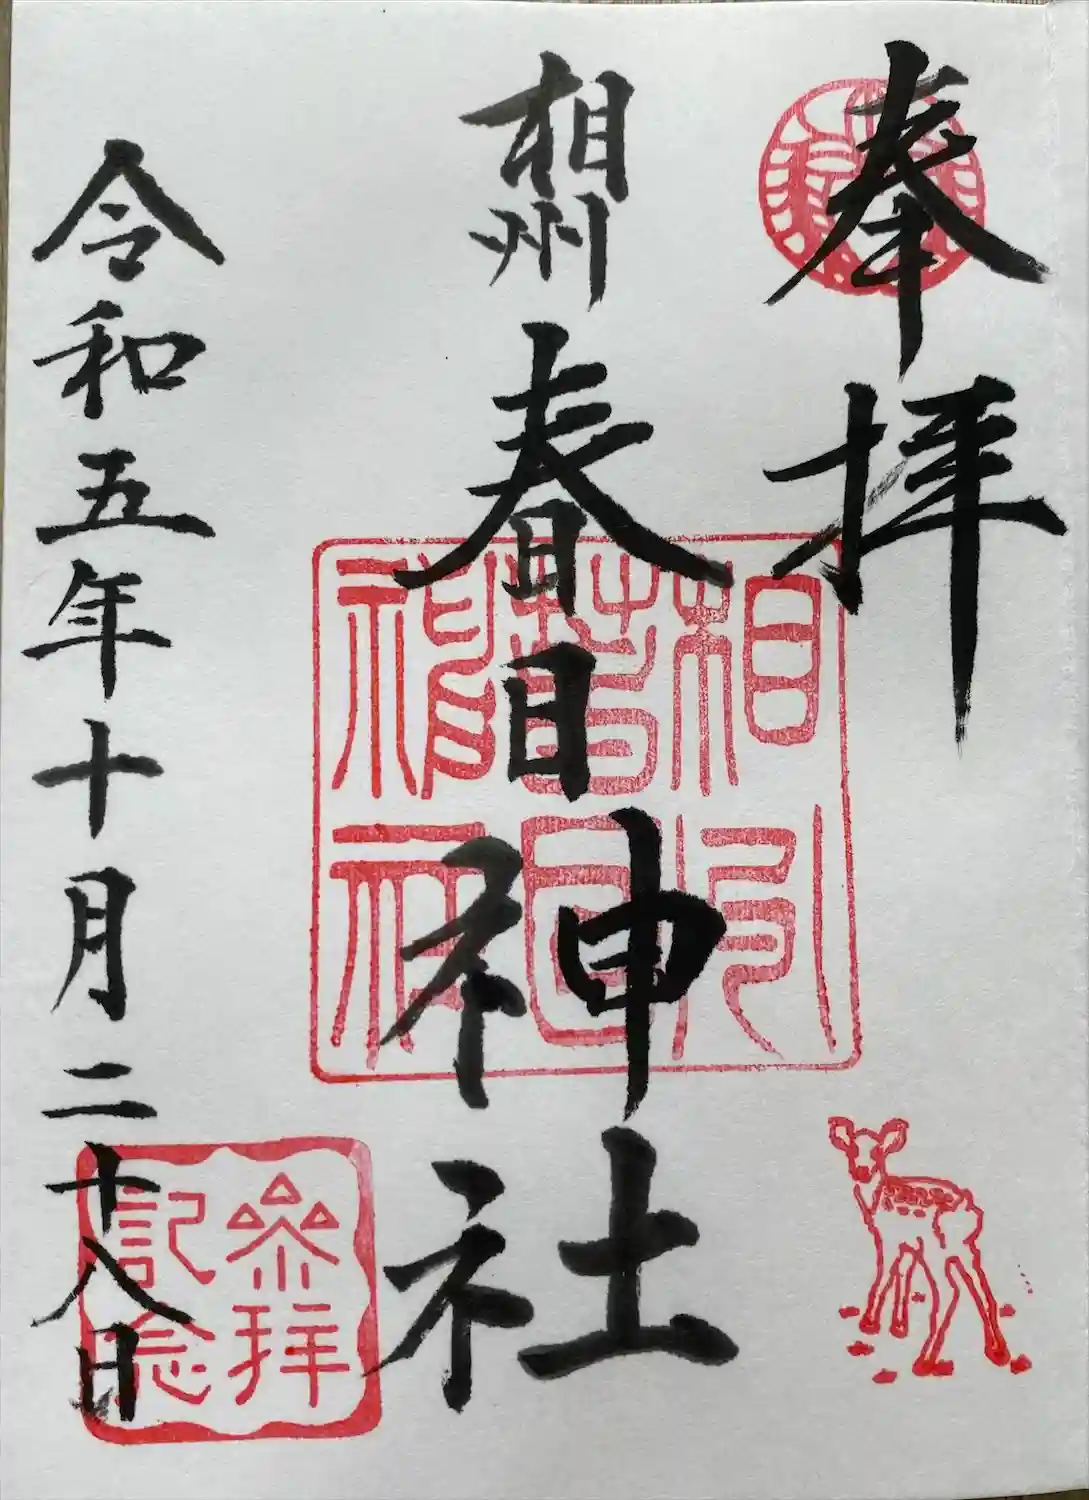 奉拝
相州春日神社
相州春日神社
令和五年十月二十八日
参拝記念